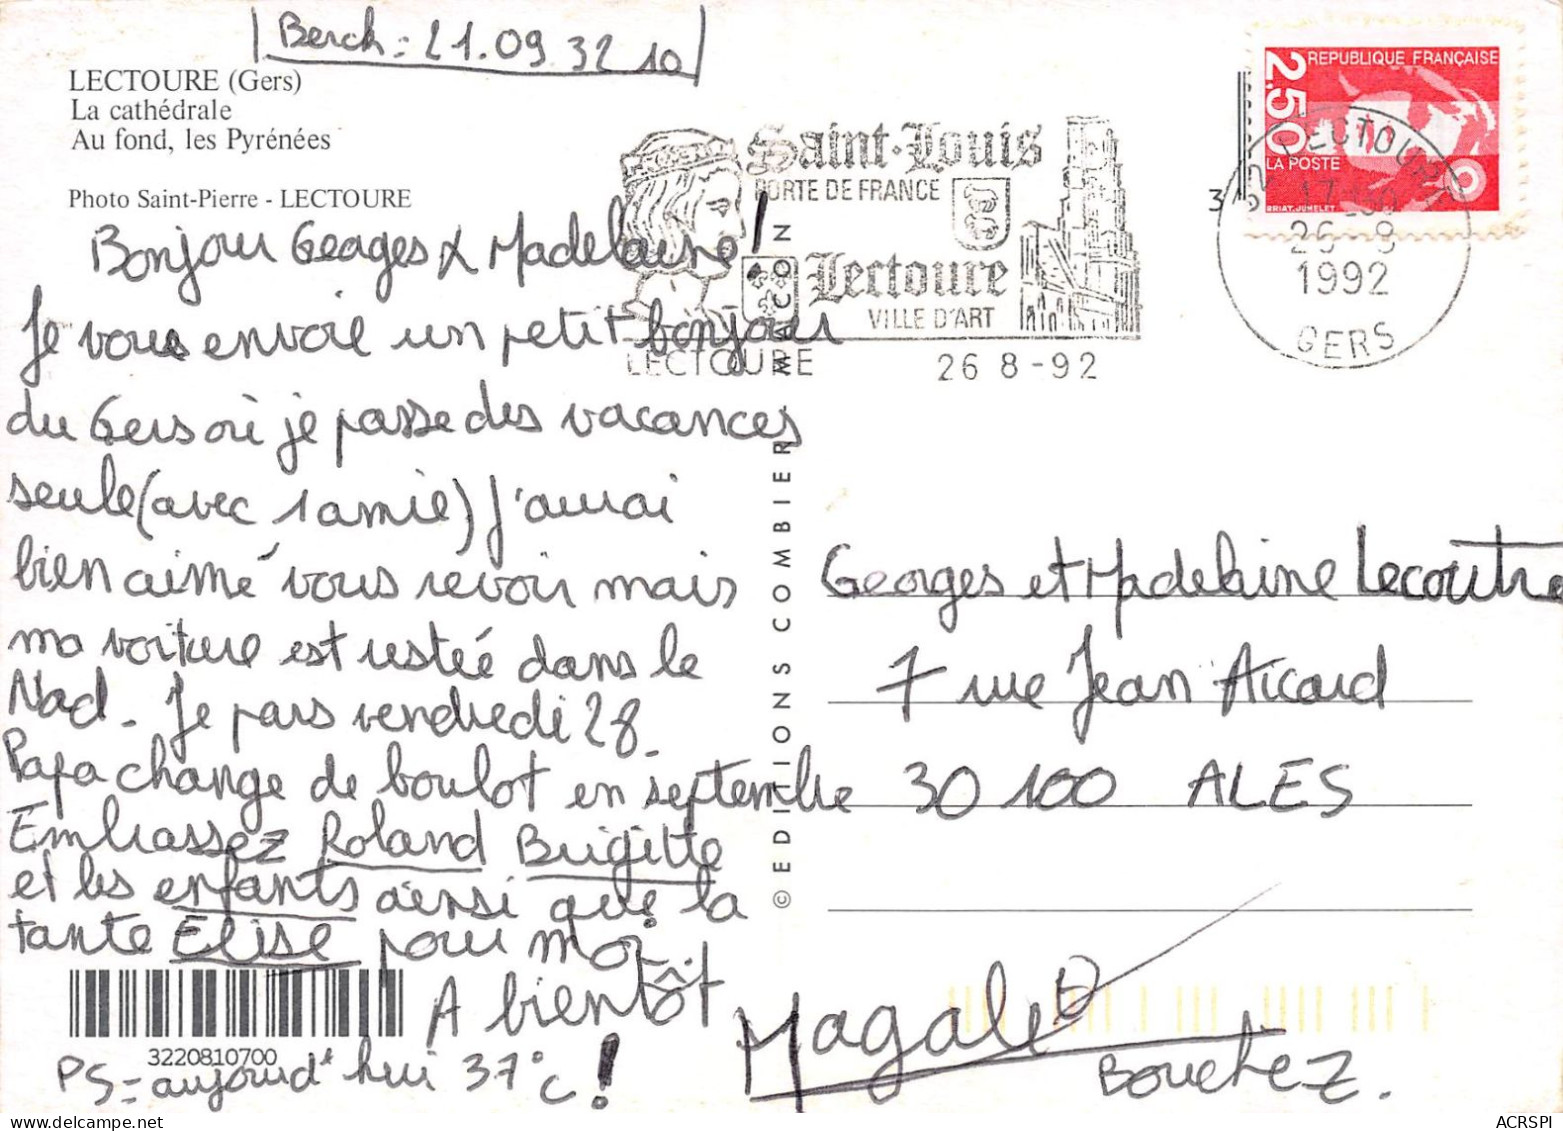 Berck = 21.09 32 10
LECTOURE (Gers)
La cathédrale
Au fond, les Pyrénées
Photo Saint-Pierre - LECTOURE
Saint-Louis
PORTE DE FRANCE
Lectoure
VILLE D'ART
LECTOURE
26 8 -92
REPUBLIQUE FRANÇAISE
2,50
LA POSTE
BRIAT.JUMELET
32 LECTOURE
26 -8
1992
GERS
Bonjour Georges & Madelaine!
Je vous envoie un petit bonjour
du Gers où je passe des vacances
seule (avec 1 amie) J'aurai
bien aimé vous revoir mais
ma voiture est restée dans le
Nord. Je pars vendredi 28.
Papa change de boulot en septembre
Embrassez Roland Brigitte
et les enfants ainsi que la
tante Elise pour moi.
A bientôt
PS = aujourd'hui 37°C !
3220810700
© EDITIONS COMBIER MACON
Georges et Madelaine Lecoutre
7 rue Jean Aicard
30 100 ALES
Magalie
Bouchez.
ACRSPI